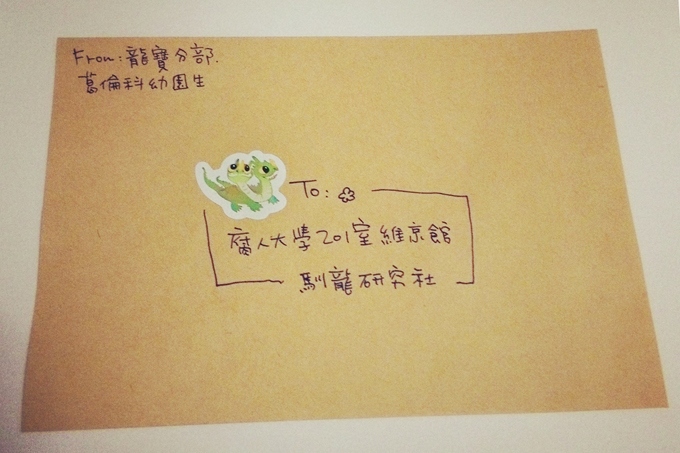 From:龍寶分部.
葛倫科幼園生
To:
腐人大學201室維京館
馴龍研究社